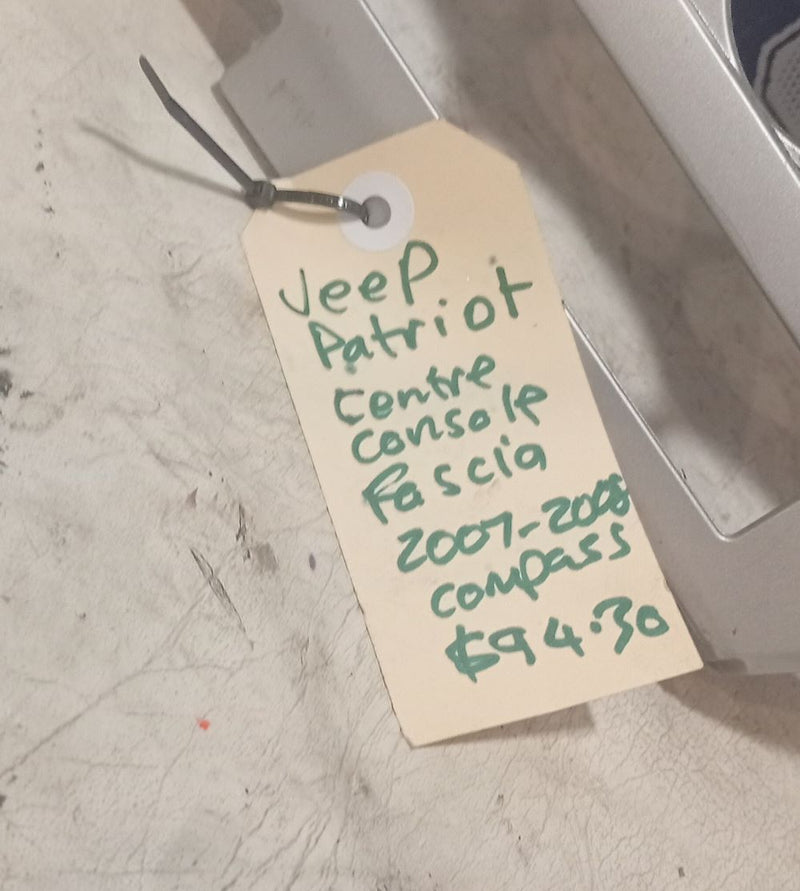 Jeep
Patriot
Centre
console
Fascia
2007-2008
compass
$94.30